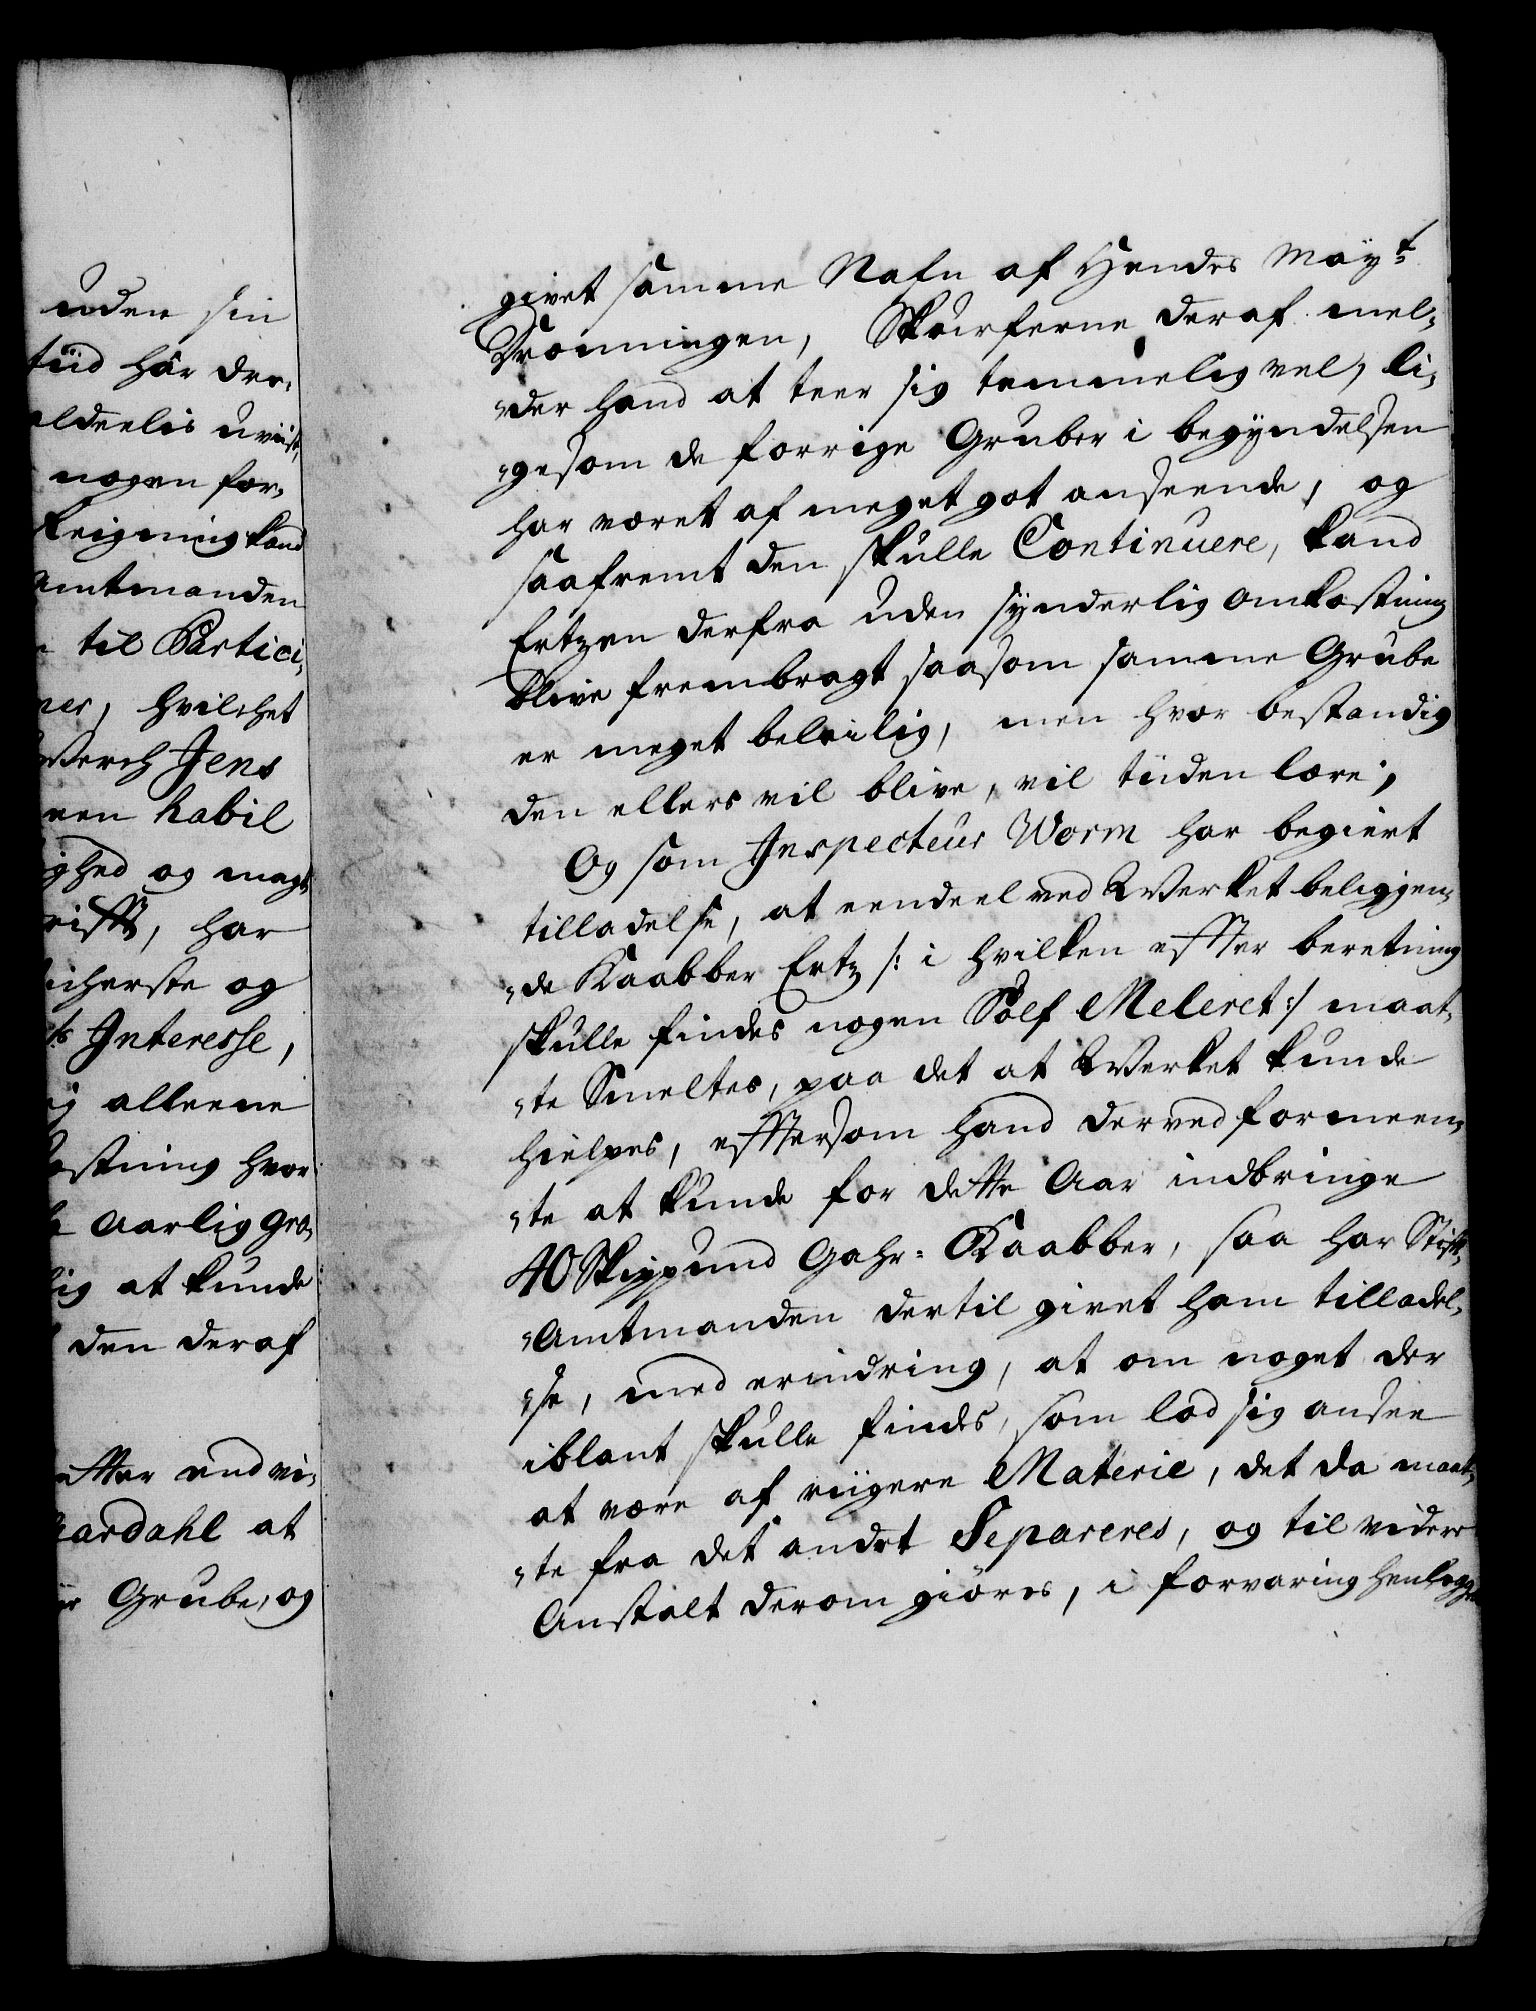 uden sin
tiid hâr der„
aldeelis uvist,
nogen for„
Kand
Amtmanden
til Partici„
ner, hvilchet
Werch Jens
een habil
ighed og magt„
rifft, har
icherste og
ts Interesse,
ig alleene
kostning hvor
Aarlig gra„
lig at kunde
den deraf
efter end vi„
aardahl at
Grube, og
givet samme Nafn af Hendes Mayt
Dronningen, Skiurferne deraf mel„
„der hand at teer sig temmelig vel, li„
„gesom de forrige Gruber i begyndelsen
har været af meget got anseende, og
saafremt den skulle Continuere, kand
Ertzen derfra uden synderlig omkostning
blive frembragt saasom samme Grube
er meget beleilig, men hvor bestandig
den ellers vil blive, vil tiiden lære;
Og som Inspecteur Worm har begiert
tilladelse, at eendeel ved Werket beliggen„
„de Kaabber Ertz /: i hvilken effter beretning
skulle findes nogen Sølf Meleret :/ maat„
„te Smeltes, paa det at Werket kunde
hielpes, efftersom hand derved formeen„
„te at kunde for dette Aar indbringe
40 Skippund Gahr-Kaabber, saa har Stifft„
„Amtmanden dertil givet ham tilladel„
„se, med erindring, at om noget der
iblant skulle findes, som lod sig ansee
at være af riigere Materie, det da maat„
„te fra det andet Separeres, og til videre
Anstalt derom giøres, i forvaring henlegge